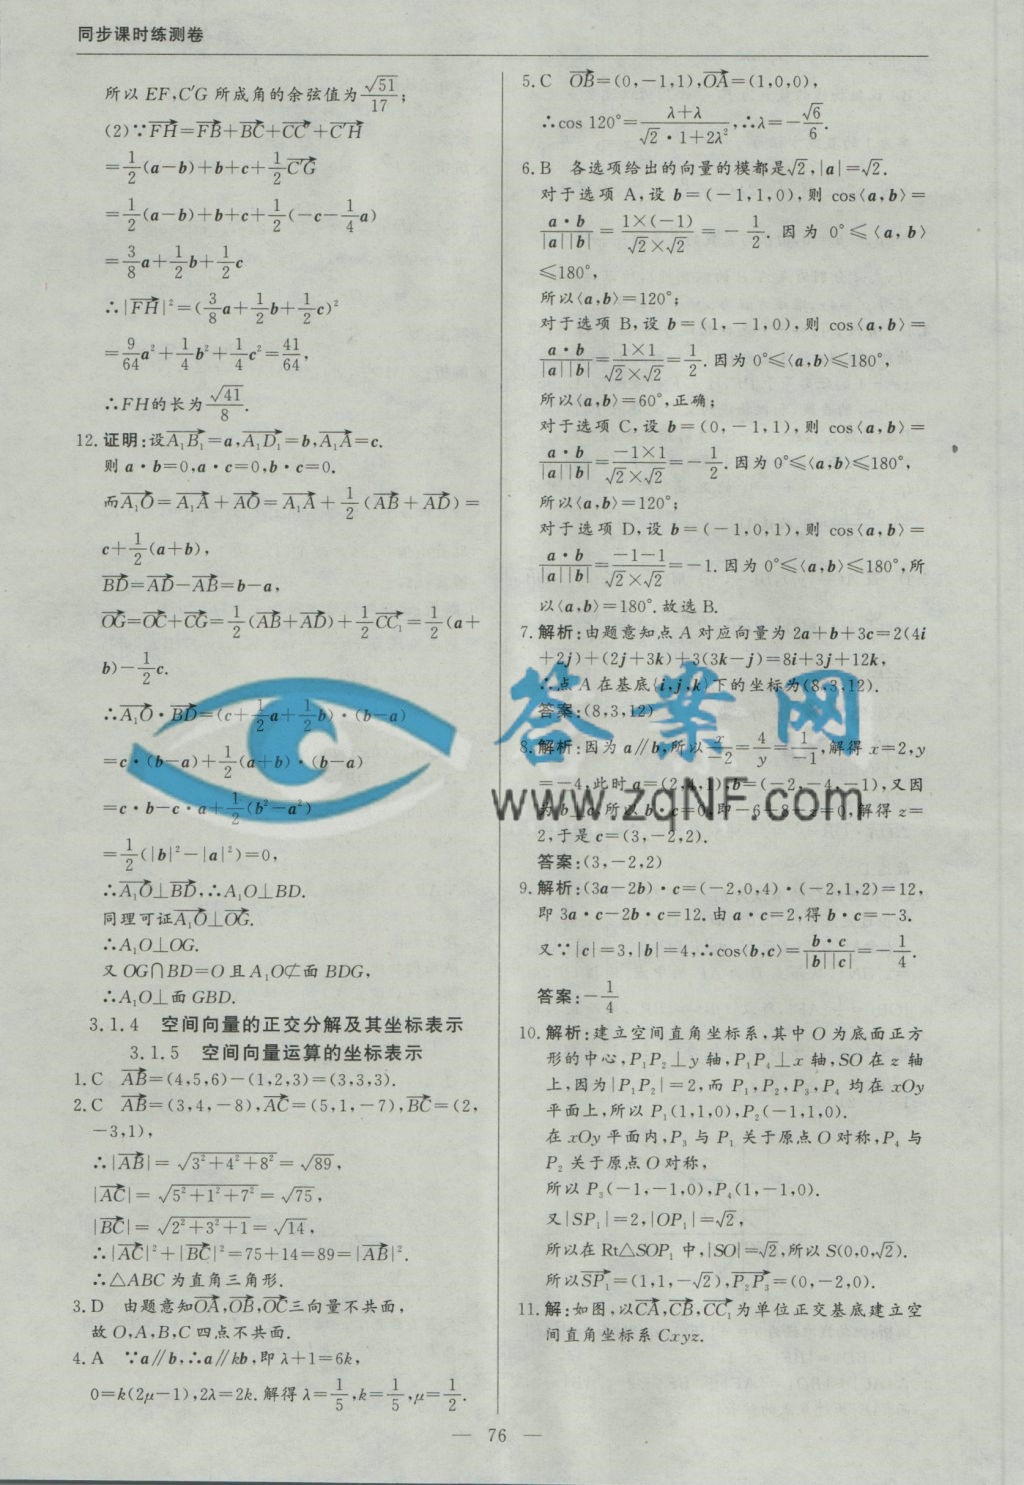 同步课时练测卷
所以 EF,C′G 所成角的余弦值为√51/17;
(2)∵FH=FB+BC+CC′+C′H
=1/2(a−b)+b+c+1/2C′G
=1/2(a−b)+b+c+1/2(−c−1/4a)
=3/8a+1/2b+1/2c
∴|FH|²=(3/8a+1/2b+1/2c)²
=9/64a²+1/4b²+1/4c²=41/64,
∴FH的长为√41/8.
12.证明:设A₁B₁=a,A₁D₁=b,A₁A=c.
则 a·b=0,a·c=0,b·c=0.
而A₁O=A₁A+AO=A₁A+1/2(AB+AD)=
c+1/2(a+b),
BD=AD−AB=b−a,
OG=OC+CG=1/2(AB+AD)+1/2CC₁=1/2(a+
b)−1/2c.
∴A₁O·BD=(c+1/2a+1/2b)·(b−a)
=c·(b−a)+1/2(a+b)·(b−a)
=c·b−c·a+1/2(b²−a²)
=1/2(|b|²−|a|²)=0,
∴A₁O⊥BD,∴A₁O⊥BD.
同理可证A₁O⊥OG.
∴A₁O⊥OG.
又 OG∩BD=O 且 A₁O⊄面 BDG,
∴A₁O⊥面 GBD.
3.1.4 空间向量的正交分解及其坐标表示
3.1.5 空间向量运算的坐标表示
1.C AB=(4,5,6)−(1,2,3)=(3,3,3).
2.C AB=(3,4,−8),AC=(5,1,−7),BC=(2,
−3,1),
∴|AB|=√3²+4²+8²=√89,
|AC|=√5²+1²+7²=√75,
|BC|=√2²+3²+1=√14,
∴|AC|²+|BC|²=75+14=89=|AB|².
∴△ABC 为直角三角形.
3.D 由题意知OA,OB,OC三向量不共面,
故 O,A,B,C 四点不共面.
4.A ∵a∥b,∴a∥kb,即 λ+1=6k,
0=k(2μ−1),2λ=2k.解得 λ=1/5,k=1/5,μ=1/2.
5.C OB=(0,−1,1),OA=(1,0,0),
∴cos 120°=λ+λ/√2·1+2λ²,∴λ=−√6/6.
6.B 各选项给出的向量的模都是√2,|a|=√2.
对于选项 A,设 b=(−1,1,0),则 cos⟨a,b⟩=
a·b/|a||b|=1×(−1)/√2×√2=−1/2.因为 0°≤⟨a,b⟩
≤180°,
所以⟨a,b⟩=120°;
对于选项 B,设 b=(1,−1,0),则 cos⟨a,b⟩=
a·b/|a||b|=1×1/√2×√2=1/2.因为 0°≤⟨a,b⟩≤180°,
所以⟨a,b⟩=60°,正确;
对于选项 C,设 b=(0,−1,1),则 cos⟨a,b⟩=
a·b/|a||b|=−1×1/√2×√2=−1/2.因为 0°≤⟨a,b⟩≤180°,
所以⟨a,b⟩=120°;
对于选项 D,设 b=(−1,0,1),则 cos⟨a,b⟩=
a·b/|a||b|=−1−1/√2×√2=−1.因为 0°≤⟨a,b⟩≤180°,所
以⟨a,b⟩=180°.故选 B.
7.解析:由题意知点 A 对应向量为 2a+b+3c=2(4i
+2j)+(2j+3k)+3(3k−j)=8i+3j+12k,
∴点 A 在基底{i,j,k}下的坐标为(8,3,12).
答案:(8,3,12)
8.解析:因为 a∥b,所以x/−2=4/y=1/−1,解得 x=2,y
=−4,此时 a=(2,4,1),b=(−2,−4,−1),又因
为 b⊥c,所以 b·c=0,即−6+8−z=0,解得 z=
2,于是 c=(3,−2,2).
答案:(3,−2,2)
9.解析:(3a−2b)·c=(−2,0,4)·(−2,1,2)=12,
即 3a·c−2b·c=12.由 a·c=2,得 b·c=−3.
又∵|c|=3,|b|=4,∴cos⟨b,c⟩=b·c/|b||c|=−1/4.
答案:−1/4
10.解析:建立空间直角坐标系,其中 O 为底面正方
形的中心,P₁P₂⊥y 轴,P₁P₄⊥x 轴,SO 在 z 轴
上,因为|P₁P₂|=2,而 P₁,P₂,P₃,P₄ 均在 xOy
平面上,所以 P₁(1,1,0),P₂(−1,1,0).
在 xOy 平面内,P₃ 与 P₁ 关于原点 O 对称,P₄ 与
P₂ 关于原点 O 对称,
所以 P₃(−1,−1,0),P₄(1,−1,0).
又|SP₁|=2,|OP₁|=√2,
所以在 Rt△SOP₁ 中,|SO|=√2,所以 S(0,0,√2).
所以SP₁=(1,1,−√2),P₂P₃=(0,−2,0).
11.解:如图,以CA,CB,CC₁为单位正交基底建立空
间直角坐标系 Cxyz.
答案网
www.zqNF.com
— 76 —